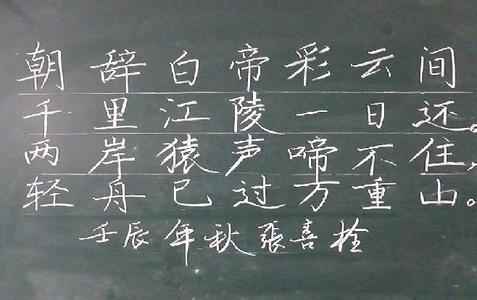 朝辞白帝彩云间
千里江陵一日还。
两岸猿声啼不住,
轻舟已过万重山。
壬辰年秋張喜栓